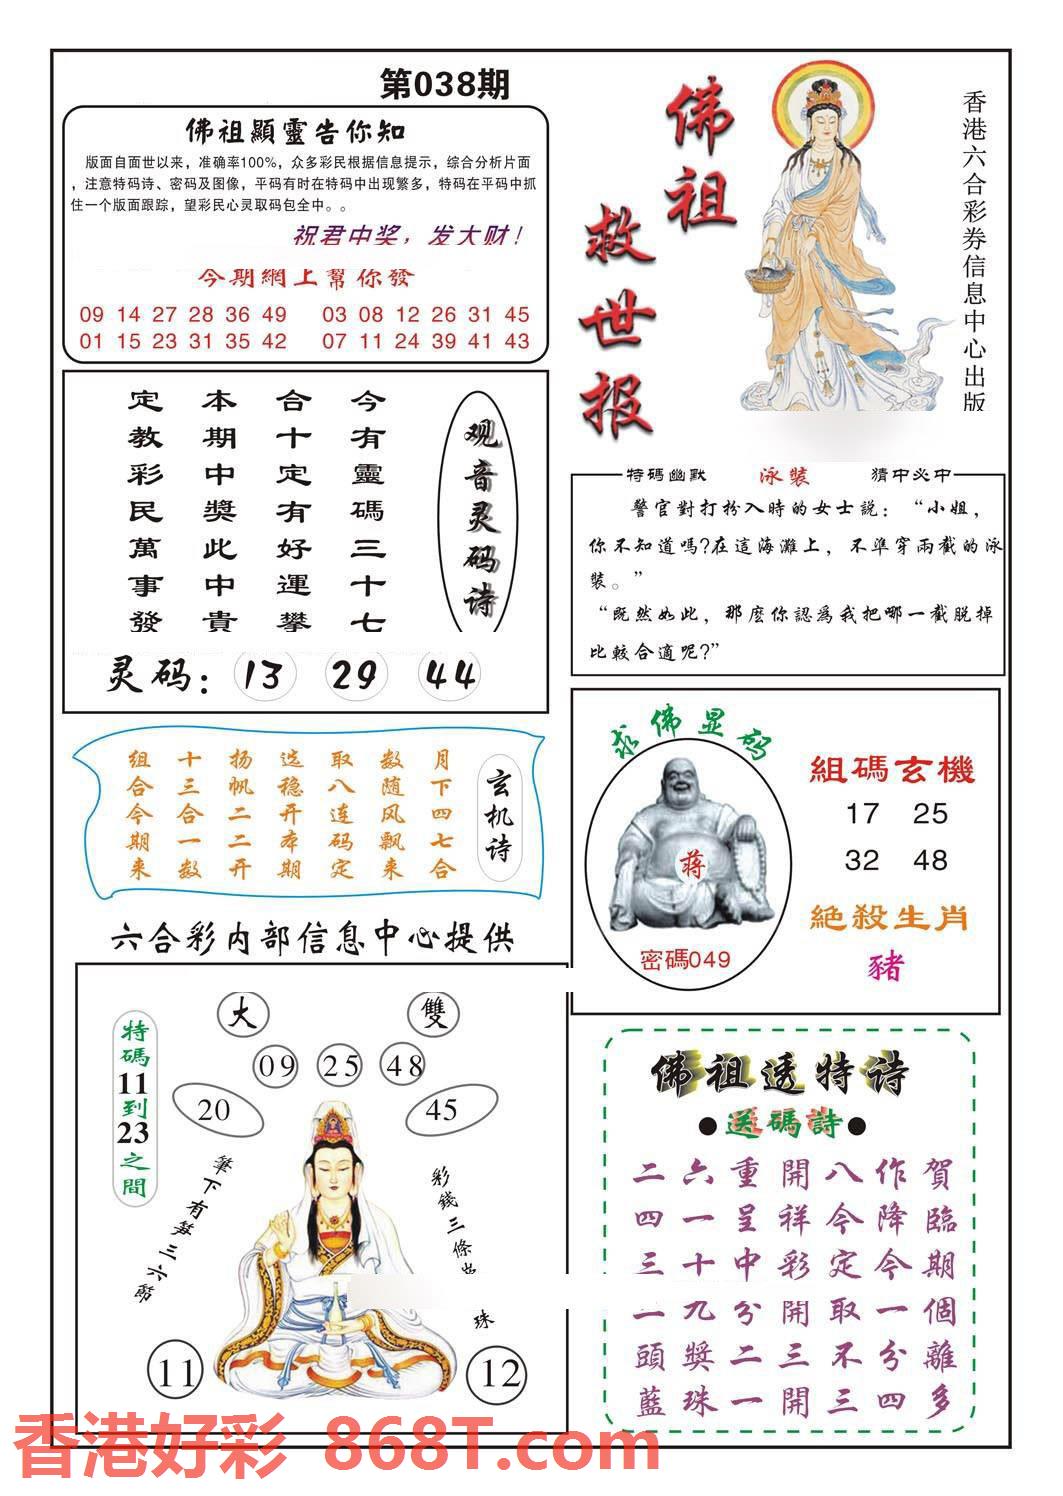 第038期
佛祖顯靈告你知
版面自面世以来，准确率100%，众多彩民根据信息提示，综合分析片面
，注意特码诗、密码及图像，平码有时在特码中出现繁多，特码在平码中抓
住一个版面跟踪，望彩民心灵取码包全中。。
祝君中奖，发大财！
今期網上幫你發
09 14 27 28 36 49 03 08 12 26 31 45
01 15 23 31 35 42 07 11 24 39 41 43
佛祖
救世报
香港六合彩券信息中心出版
观音灵码诗
今有靈碼三十七
合十定有好運攀
本期中獎此中貴
定教彩民萬事發
灵码：13 29 44
特碼幽默 泳裝 猜中必中
警官對打扮入時的女士説：“小姐，
你不知道嗎?在這海灘上，不準穿兩截的泳
裝。”
“既然如此，那麽你認爲我把哪一截脱掉
比較合適呢?”
玄机诗
月下四七合
数随风飘来
取八连码定
选稳开本期
扬帆二二开
十三合一数
组合今期来
求佛显码
蒋
密碼049
組碼玄機
17 25
32 48
絶殺生肖
豬
六合彩内部信息中心提供
大 雙
09 25 48
20 45
特碼11到23之間
筆下有笋三六節
彩錢三條
珠
11 12
佛祖透特诗
●送碼詩●
賀臨期個離多
作降今一分四
八今定取不三
開祥彩開三開
重呈中分二一
六一十九獎珠
二四三一頭藍
香港好彩 868T.com